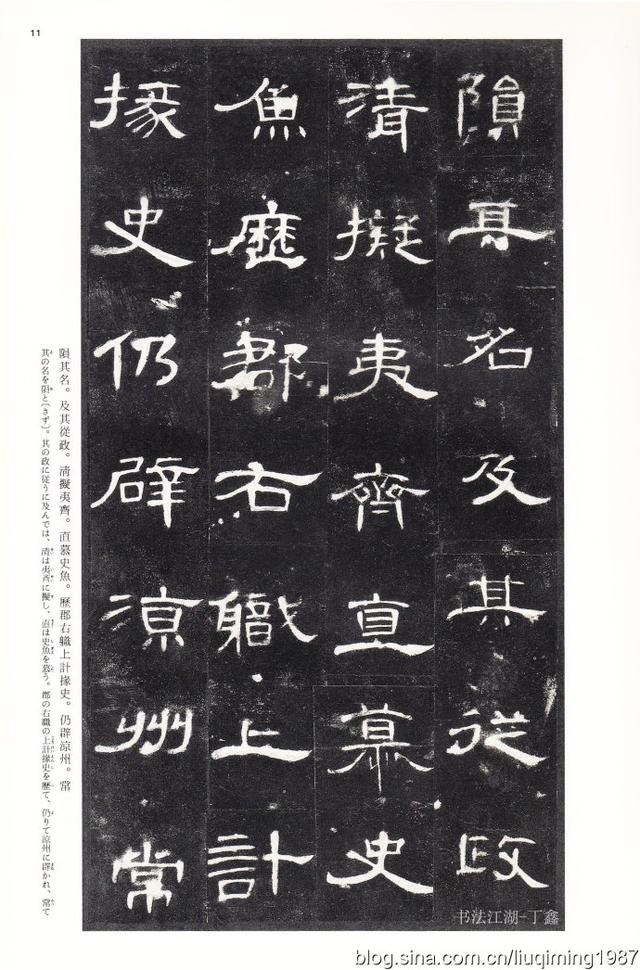 11
隕其名及其從政
清擬夷齊直慕史
魚歷郡右職上計
掾史仍辟涼州常
隕其名。及其從政。清擬夷齊。直慕史魚。歷郡右職上計掾史。仍辟涼州。常
其の名を隕と〔さず〕。其の政に從うに及んでは、清は夷齊に擬し、直は史魚を慕う。郡の右職の上計掾史を歷て、仍りて涼州に辟かれ、常て
书法江湖-丁鑫
blog.sina.com.cn/liuqiming1987